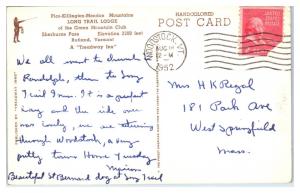 Pico-Killington-Mendon Mountains
LONG TRAIL LODGE
of the Green Mountain Club
Sherburne Pass Elevation 2200 feet
Rutland, Vermont
A "Treadway Inn"
HANDCOLORED
POST CARD
WOODSTOCK, VT.
AUG
12 - M
1952
We all went to church
Randolph, then to Long
Trail Inn. It is a perfect
day and the ride over
was lovely, we are returning
through Woodstock, a very
pretty town. Home Tuesday
Marion
Beautiful St Bernard dog at Long Trail
Mrs H K Regal
181 Park Ave
West Springfield
Mass.